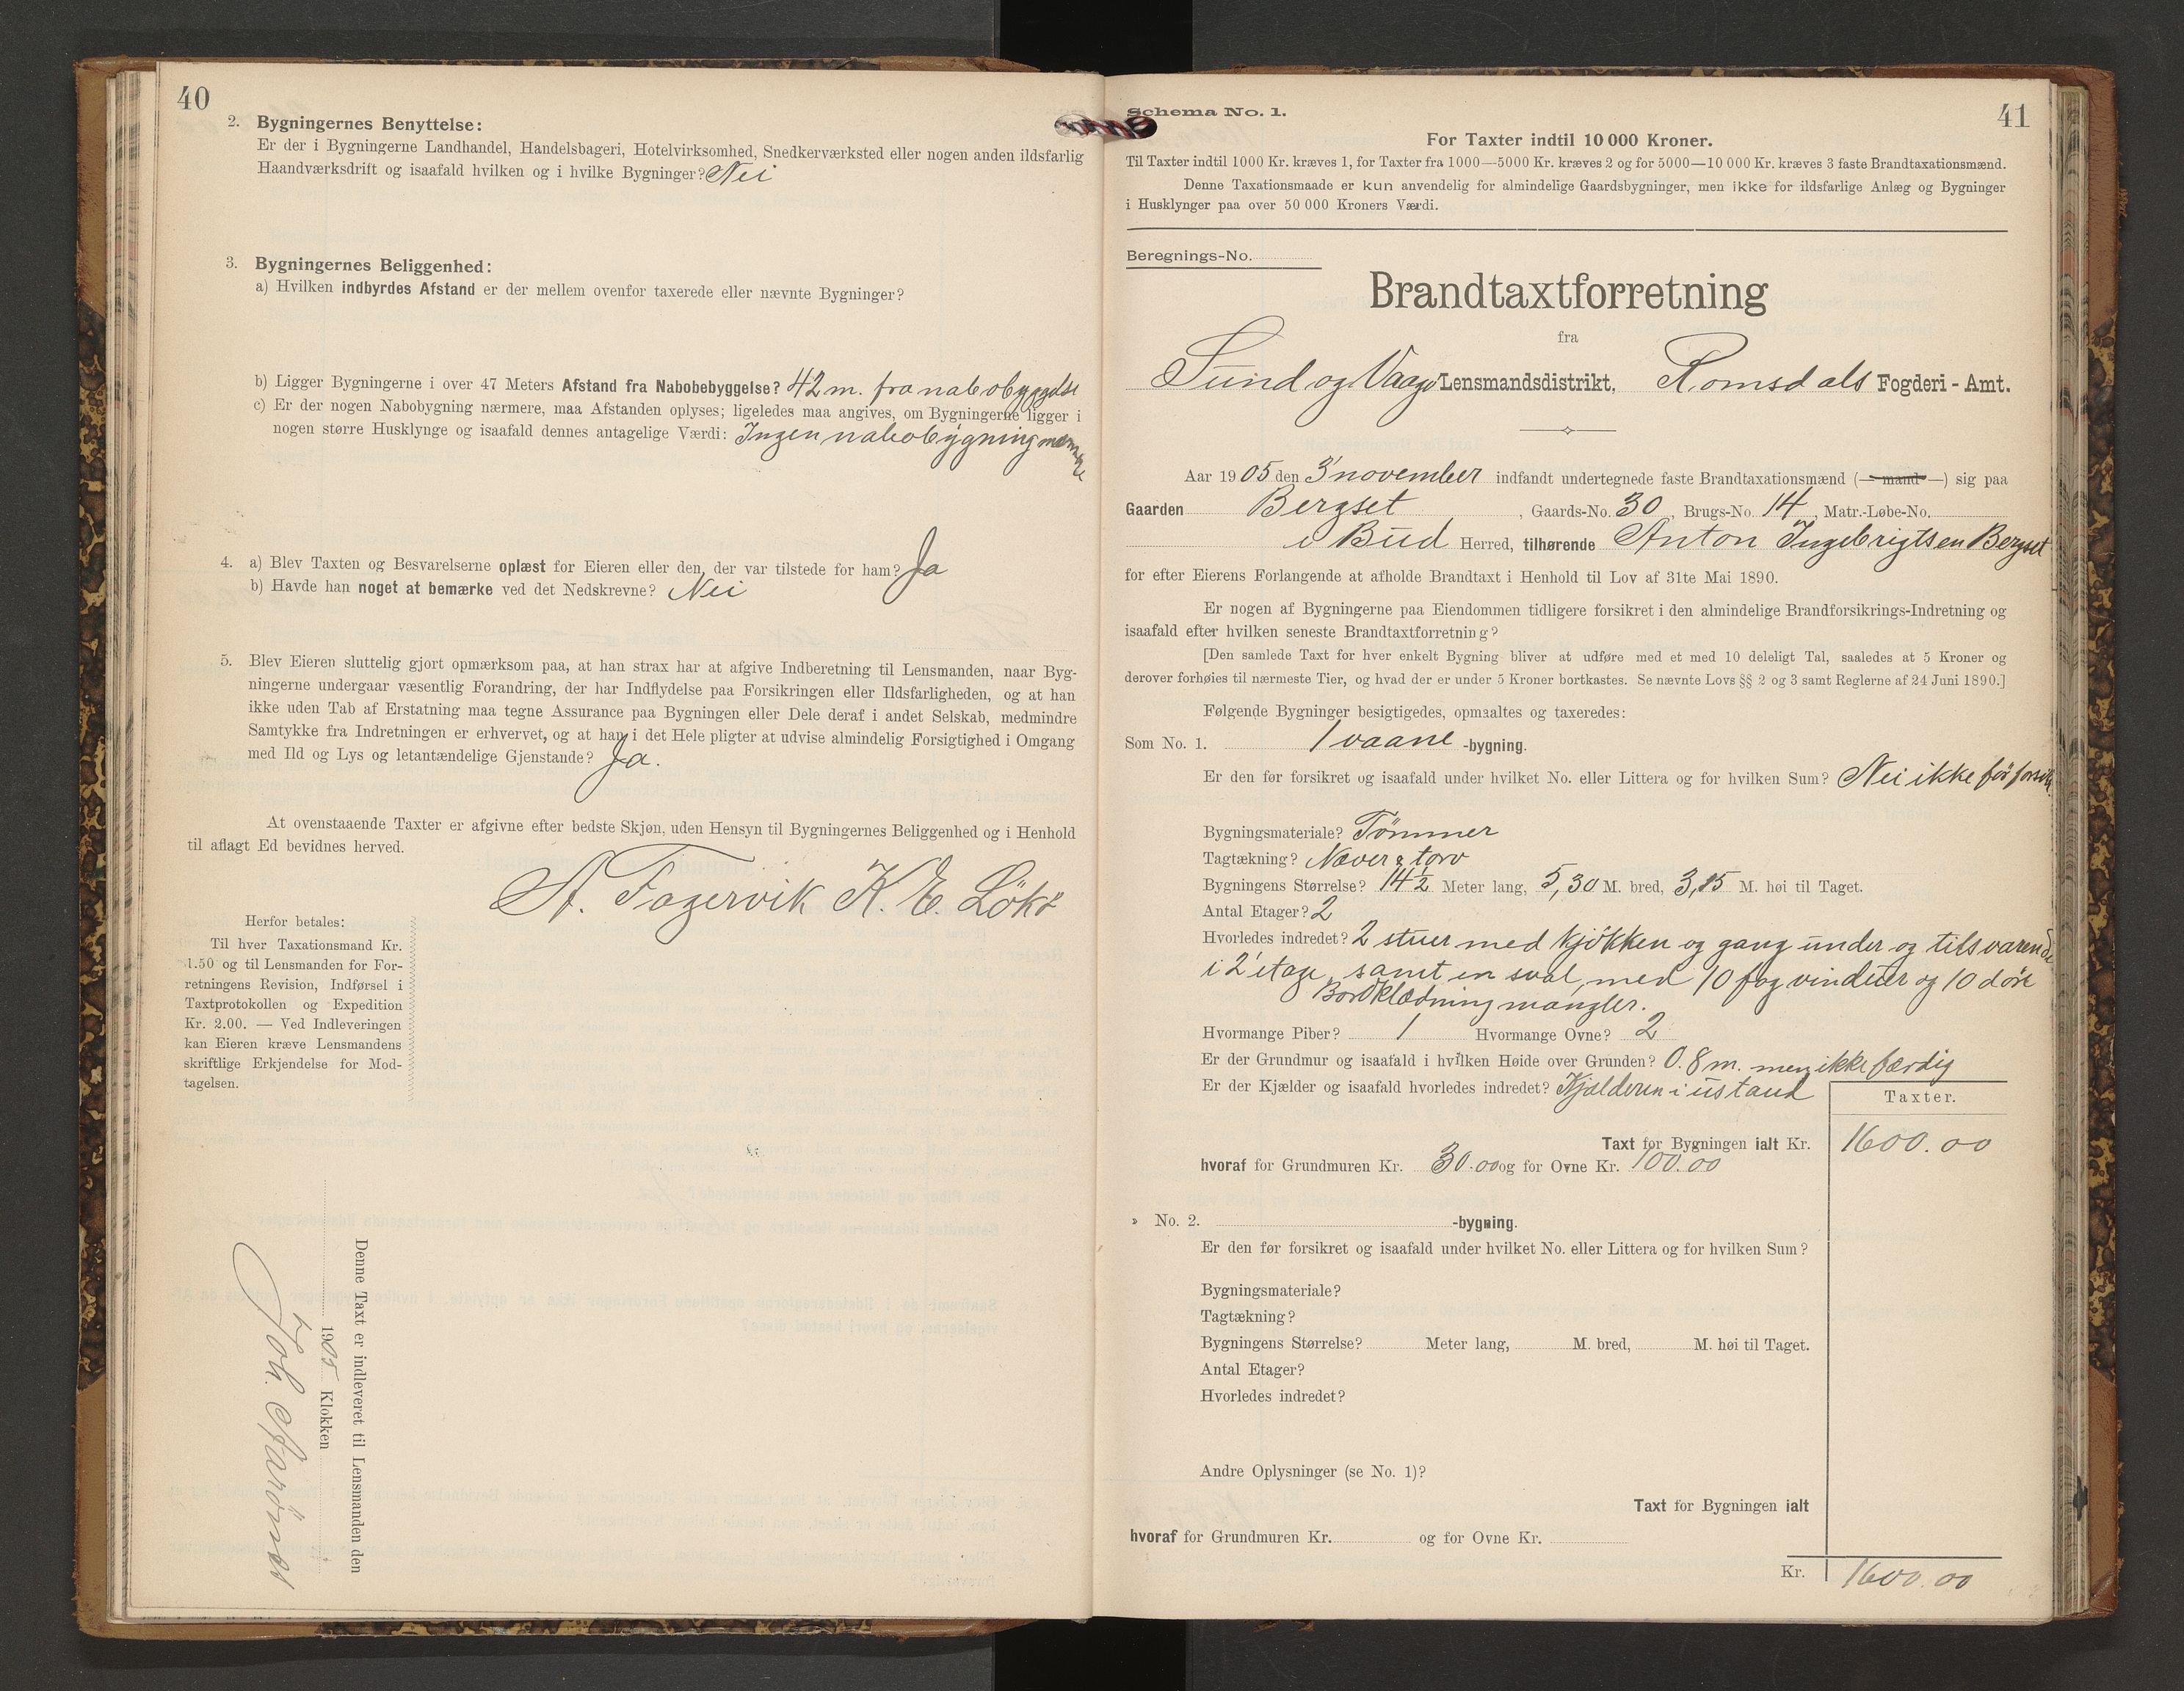 40
2. Bygningernes Benyttelse:
Er der i Bygningerne Landhandel, Handelsbageri, Hotelvirksomhed, Snedkerværksted eller nogen anden ildsfarlig
Haandværksdrift og isaafald hvilken og i hvilke Bygninger? Nei
3. Bygningernes Beliggenhed:
a) Hvilken indbyrdes Afstand er der mellem ovenfor taxerede eller nævnte Bygninger?
b) Ligger Bygningerne i over 47 Meters Afstand fra Nabobebyggelse? 42 m. fra nabobyggelse
c) Er der nogen Nabobygning nærmere, maa Afstanden oplyses; ligeledes maa angives, om Bygningerne ligger i
nogen større Husklynge og isaafald dennes antagelige Værdi: Ingen nabobygning nærmere
4. a) Blev Taxten og Besvarelserne oplæst for Eieren eller den, der var tilstede for ham? Ja
b) Havde han noget at bemærke ved det Nedskrevne? Nei
5. Blev Eieren sluttelig gjort opmærksom paa, at han strax har at afgive Indberetning til Lensmanden, naar Byg-
ningerne undergaar væsentlig Forandring, der har Indflydelse paa Forsikringen eller Ildsfarligheden, og at han
ikke uden Tab af Erstatning maa tegne Assurance paa Bygningen eller Dele deraf i andet Selskab, medmindre
Samtykke fra Indretningen er erhvervet, og at han i det Hele pligter at udvise almindelig Forsigtighed i Omgang
med Ild og Lys og letantændelige Gjenstande? Ja.
At ovenstaaende Taxter er afgivne efter bedste Skjøn, uden Hensyn til Bygningernes Beliggenhed og i Henhold
til aflagt Ed bevidnes herved.
A. Fagervik K. E. Lökö
Herfor betales:
Til hver Taxationsmand Kr.
1.50 og til Lensmanden for For-
retningens Revision, Indførsel i
Taxtprotokollen og Expedition
Kr. 2.00. — Ved Indleveringen
kan Eieren kræve Lensmandens
skriftlige Erkjendelse for Mod-
tagelsen.
Denne Taxt er indleveret til Lensmanden den
1905 Klokken
Joh.
41
Schema No. 1.
For Taxter indtil 10 000 Kroner.
Til Taxter indtil 1000 Kr. kræves 1, for Taxter fra 1000—5000 Kr. kræves 2 og for 5000—10 000 Kr. kræves 3 faste Brandtaxationsmænd.
Denne Taxationsmaade er kun anvendelig for almindelige Gaardsbygninger, men ikke for ildsfarlige Anlæg og Bygninger
i Husklynger paa over 50 000 Kroners Værdi.
Beregnings-No.
Brandtaxtforretning
fra
Sund og Vaagø Lensmandsdistrikt, Romsdals Fogderi - Amt.
Aar 1905 den 3' november indfandt undertegnede faste Brandtaxationsmænd (— mand —) sig paa
Gaarden Bergset, Gaards-No. 30, Brugs-No. 14, Matr.-Løbe-No.
i Bud Herred, tilhørende Anton Ingebrigtsen Bergset
for efter Eierens Forlangende at afholde Brandtaxt i Henhold til Lov af 31te Mai 1890.
Er nogen af Bygningerne paa Eiendommen tidligere forsikret i den almindelige Brandforsikrings-Indretning og
isaafald efter hvilken seneste Brandtaxtforretning?
[Den samlede Taxt for hver enkelt Bygning bliver at udføre med et med 10 deleligt Tal, saaledes at 5 Kroner og
derover forhøies til nærmeste Tier, og hvad der er under 5 Kroner bortkastes. Se nævnte Lovs §§ 2 og 3 samt Reglerne af 24 Juni 1890.]
Følgende Bygninger besigtigedes, opmaaltes og taxeredes:
Som No. 1. 1 vaane -bygning.
Er den før forsikret og isaafald under hvilket No. eller Littera og for hvilken Sum? Nei ikke før forsik.
Bygningsmateriale? Tömmer
Tagtækning? Næver & torv
Bygningens Størrelse? 14½ Meter lang, 5,30 M. bred, 3,15 M. høi til Taget.
Antal Etager? 2
Hvorledes indredet? 2 stuer med kjökken og gang under og tilsvarende
i 2' etage, samt en sval, med 10 fag vinduer og 10 döre
Bordklædning mangler.
Hvormange Piber? 1 Hvormange Ovne? 2
Er der Grundmur og isaafald i hvilken Høide over Grunden? 0.8 m. men ikke færdig
Er der Kjælder og isaafald hvorledes indredet? Kjælderen i ustand
Taxter.
Taxt for Bygningen ialt Kr. 1600.00
hvoraf for Grundmuren Kr. 30.00 og for Ovne Kr. 100.00
» No. 2. -bygning.
Er den før forsikret og isaafald under hvilket No. eller Littera og for hvilken Sum?
Bygningsmateriale?
Tagtækning?
Bygningens Størrelse? Meter lang, M. bred, M. høi til Taget.
Antal Etager?
Hvorledes indredet?
Andre Oplysninger (se No. 1)?
Taxt for Bygningen ialt
hvoraf for Grundmuren Kr. og for Ovne Kr.
Kr. 1600.00